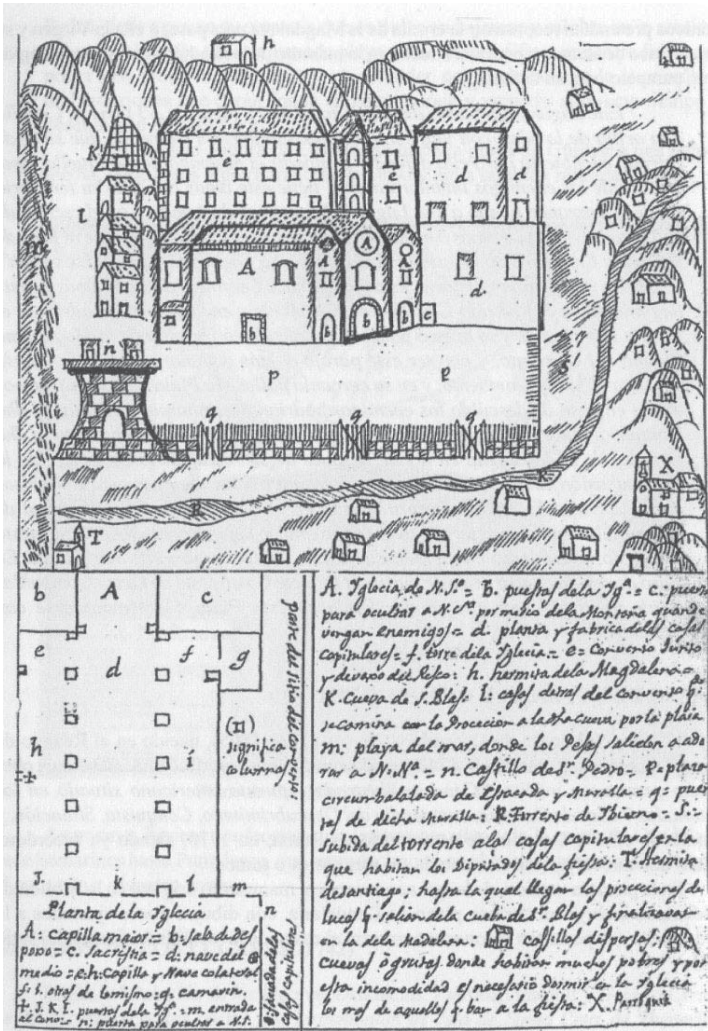 h
K
e
e
d
d
l
m
A
A
A
d
n
b
b
b
b
c
P
P
S
q
q
q
R
X
T
b
A
c
e
d
f
g
h
i
J
k
l
m
n
(п)
significa
columnas
parte del sitio del Convento:
Planta de la Yglecia
A: capilla maior = b: sala de des
poxo = c. Sacristia = d: nave del
medio = e: h: Capilla y Nave colateral
f: i. otras de lo mismo: g: camarin.
J. K. l. puertas de la Ygª: m. entrada
n: puerta para ocultar a N. S.
A. Yglecia de N. Sª = b. puertas de la Ygª = c. puerta
para ocultar a N. Srª por medio de la Montaña quando
vengan enemigos = d. planta y fabrica de las casas
capitulares = f. torre de la Yglecia = e = Convento
h. hermita de la Magdalena =
K. Cueva de S. Blas: l: casas detras del convento
se camina con la Procecion por la plaia
m: playa del mar, donde los Peses salieron a ado
rar a N. Sª = n. Castillo de Sn. Pedro = P. plaza
circunbalada de Estacada y Muralla = q = puer
tas de dicha Muralla: R. Torrente de Ybierno = S:
subida del torrente a las casas capitulares en la
que habitan los Diputados de la fiesta: T. Hermita
de Santiago; hasta la qual llegan las procesiones de
luces q. salian de la cueba de Sn. Blas y finalizavan
en la de la Madalena: casillas dispersas:
cuevas ó grutas donde habitan muchos pobres y por
esta incomodidad es necesario dormir en la Yglecia
los mas de aquellos q. ban a la fiesta: X. Parroquia